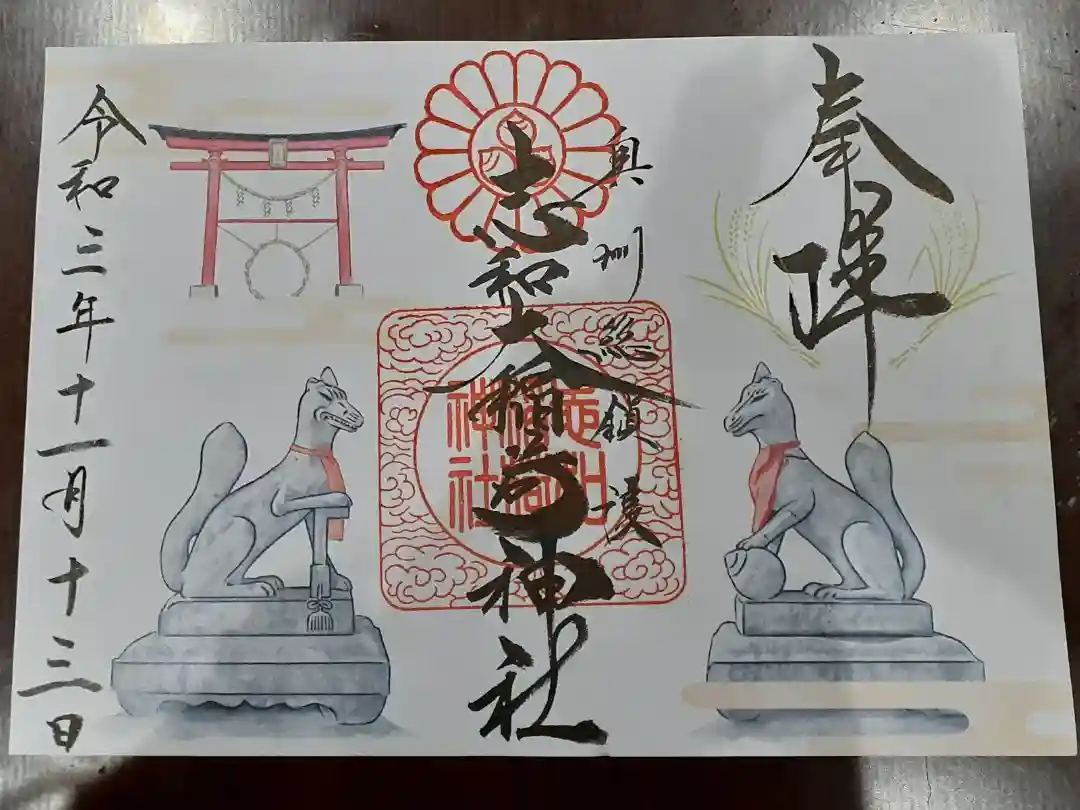 奉拝
奥州総鎮護
志和大稲荷神社
志和
稲荷
神社
令和三年十一月十三日